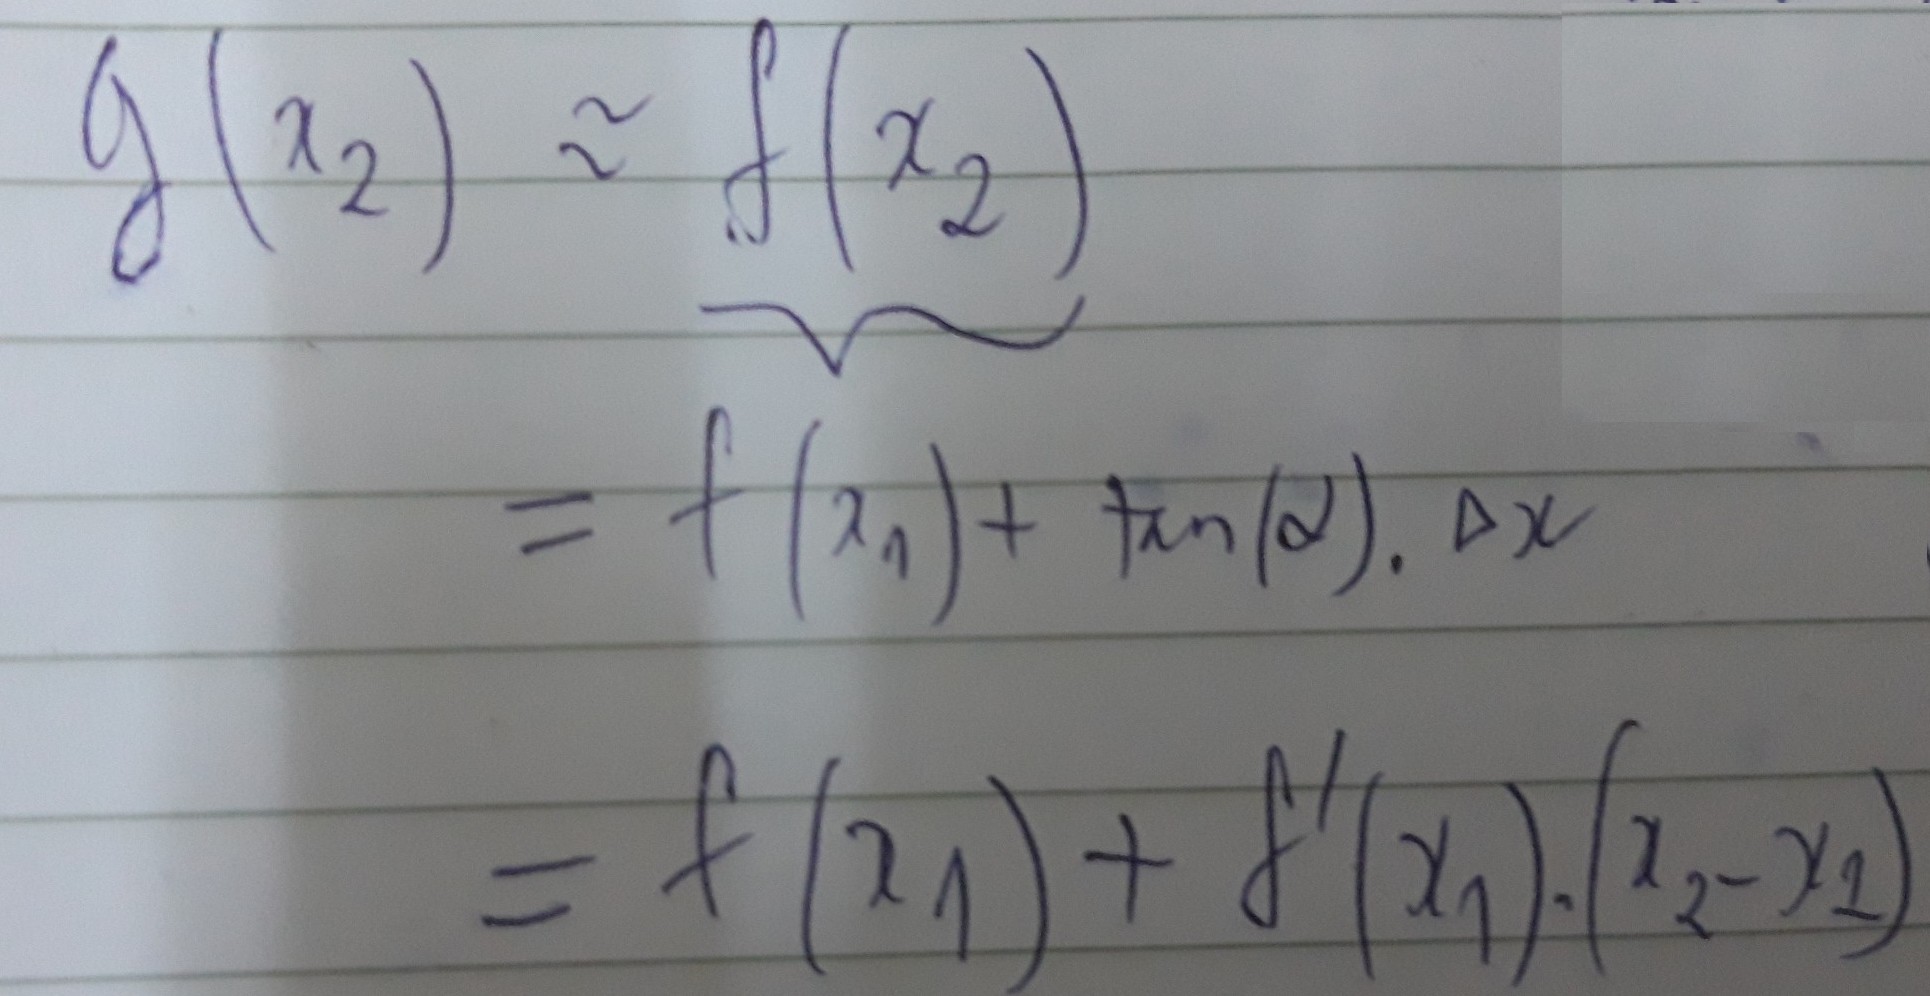 g(x₂) ≈ f(x₂)
= f(x₁) + tan(α). Δx
= f(x₁) + f'(x₁).(x₂-x₁)